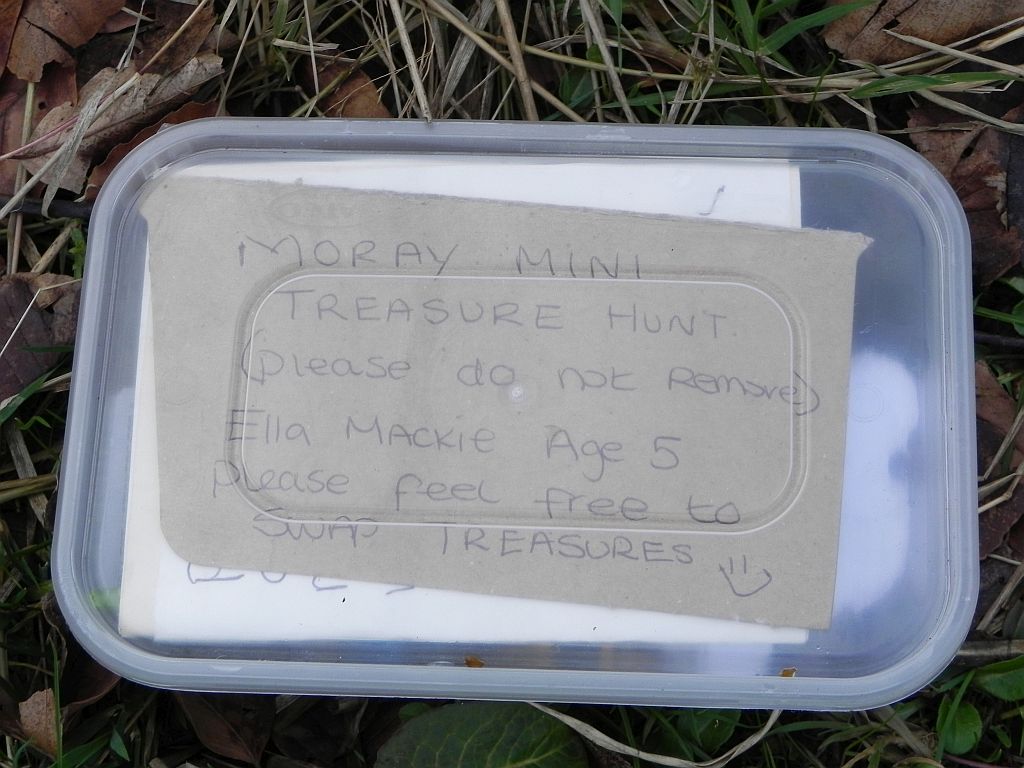 MORAY MINI
TREASURE HUNT
(please do not Remove)
Ella MACKIE Age 5
please feel free to
SWAP TREASURES